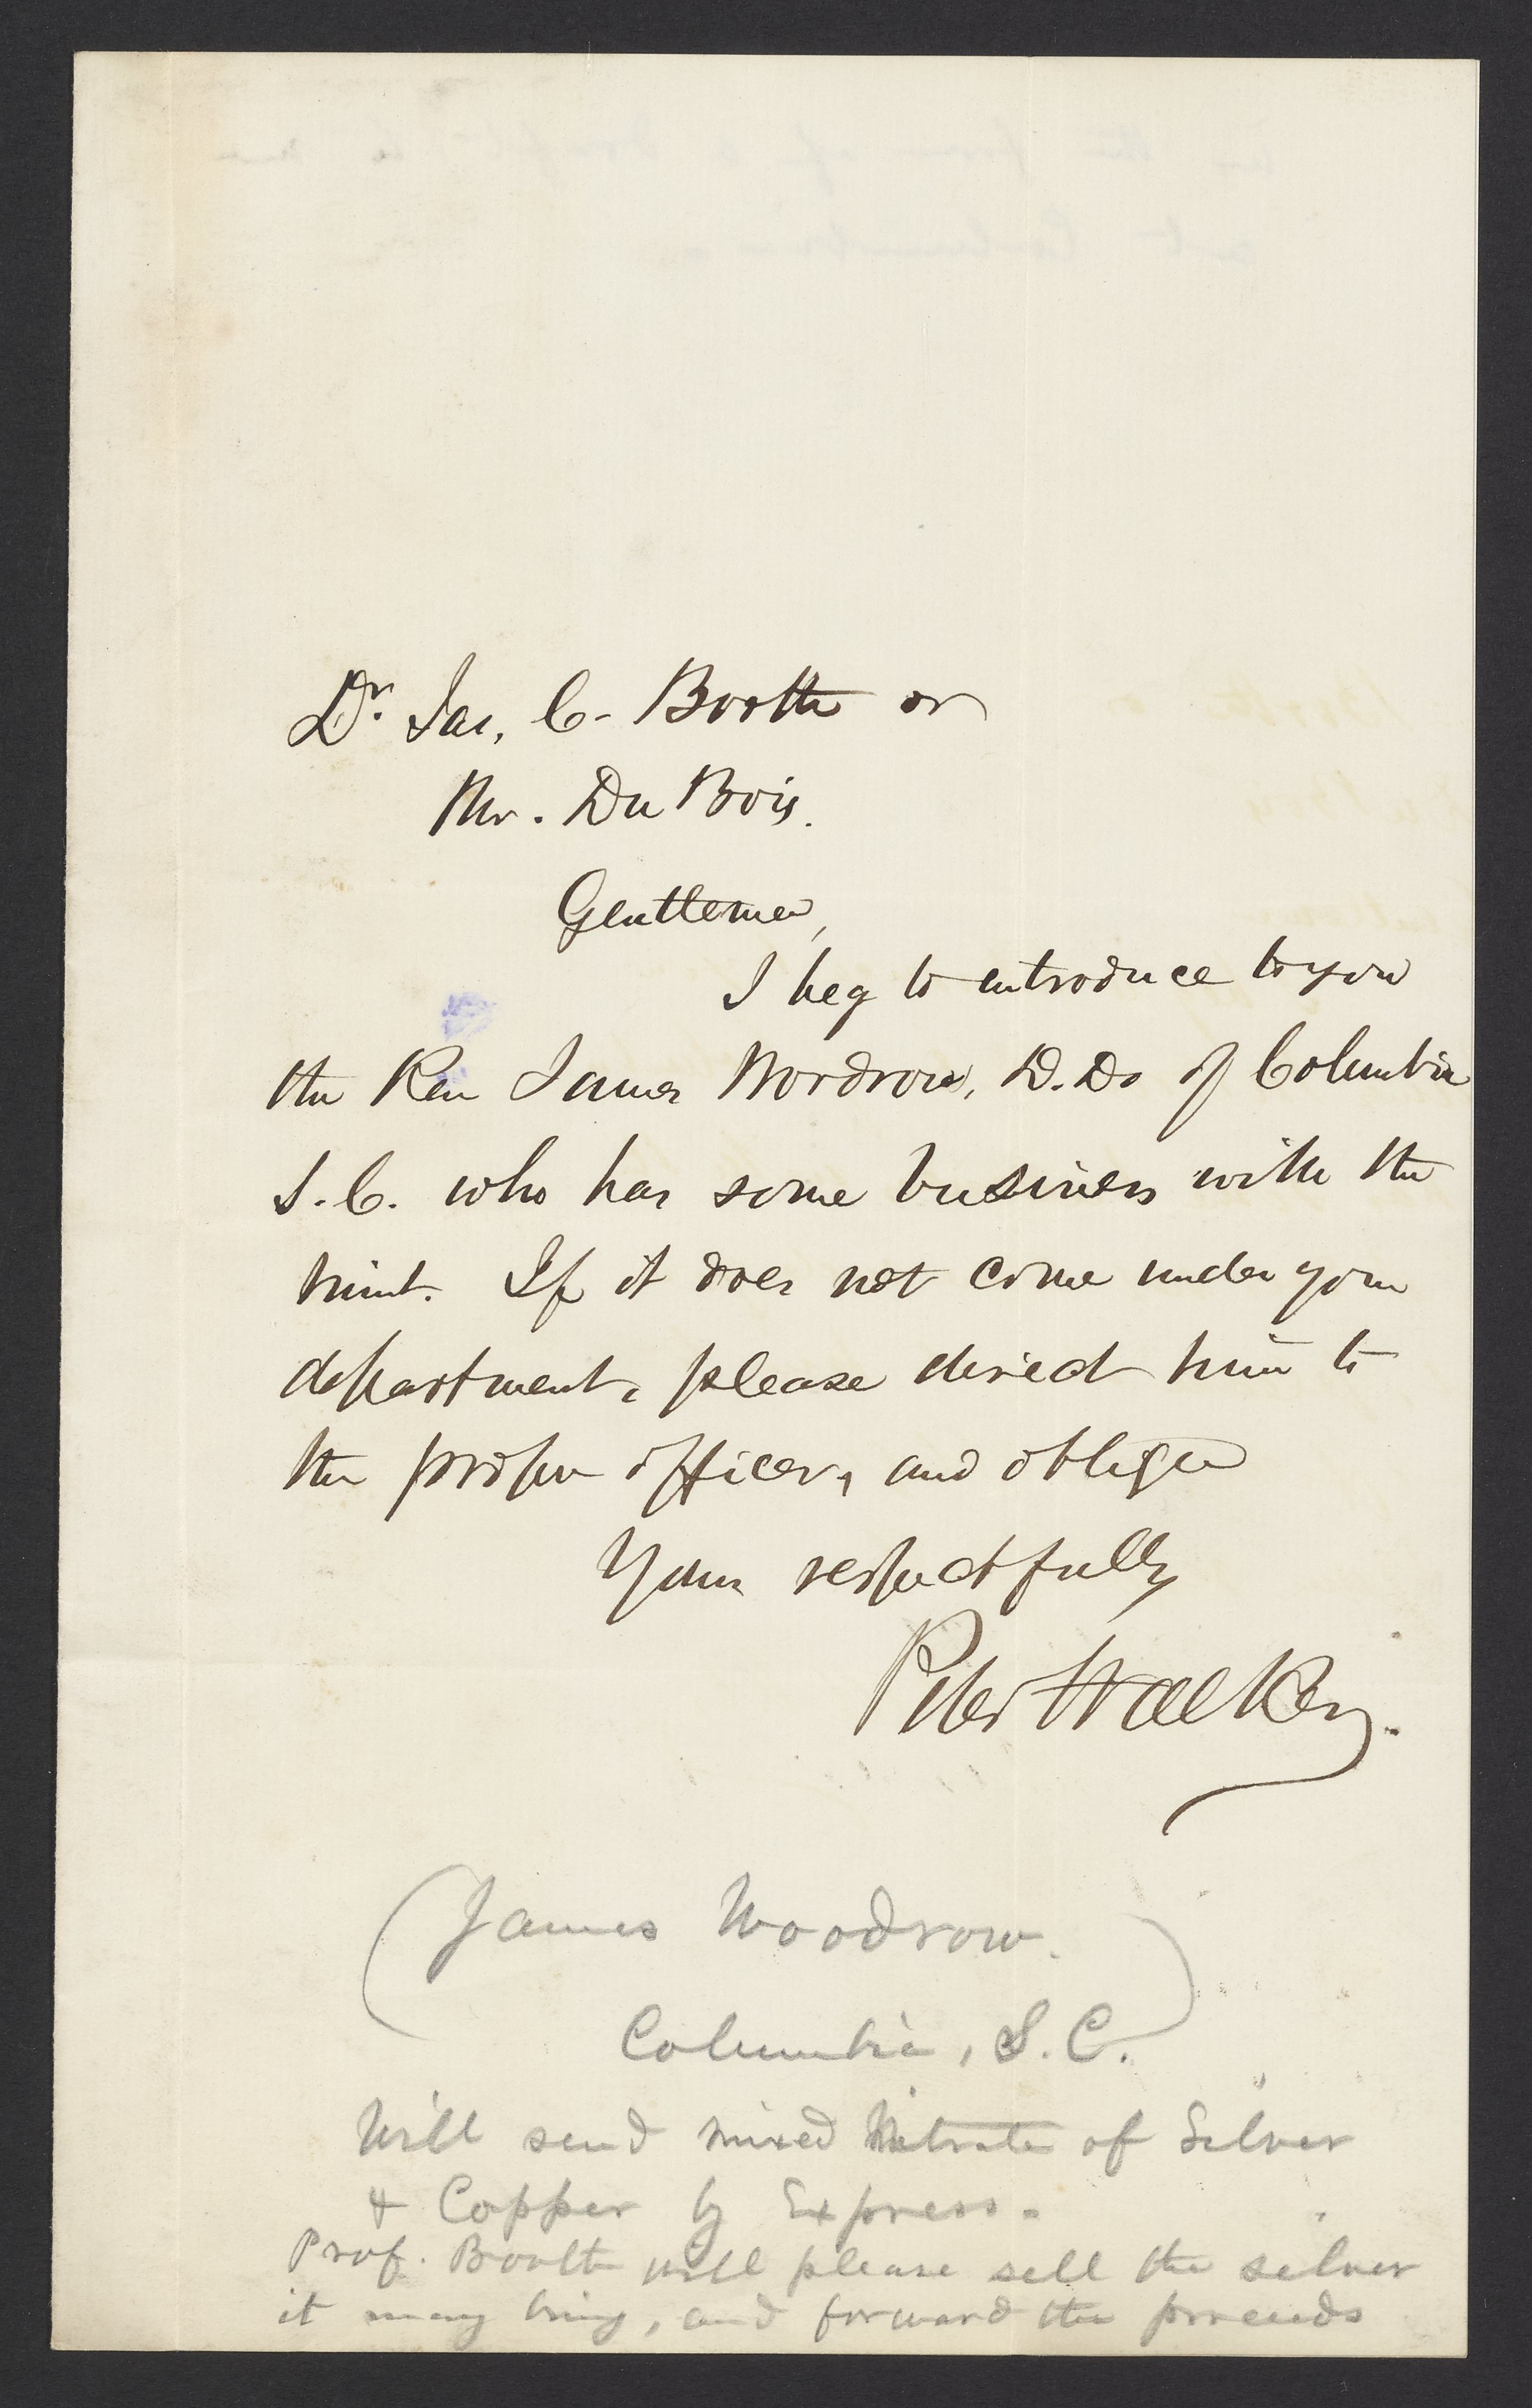 Dr. Jas. C. Booth or
Mr. Du Bois.
Gentlemen,
I beg to introduce to you
the Rev James Woodrow, D.D. of Columbia
S.C. who has some business with the
Mint. If it does not come under your
department, please direct him to
the proper officer, and oblige
Yours respectfully
Peter Walker.
(James Woodrow.
Columbia, S.C.)
Will send mixed Nitrate of Silver
& Copper by Express.
Prof. Booth will please sell the silver
it may bring, and forward the proceeds